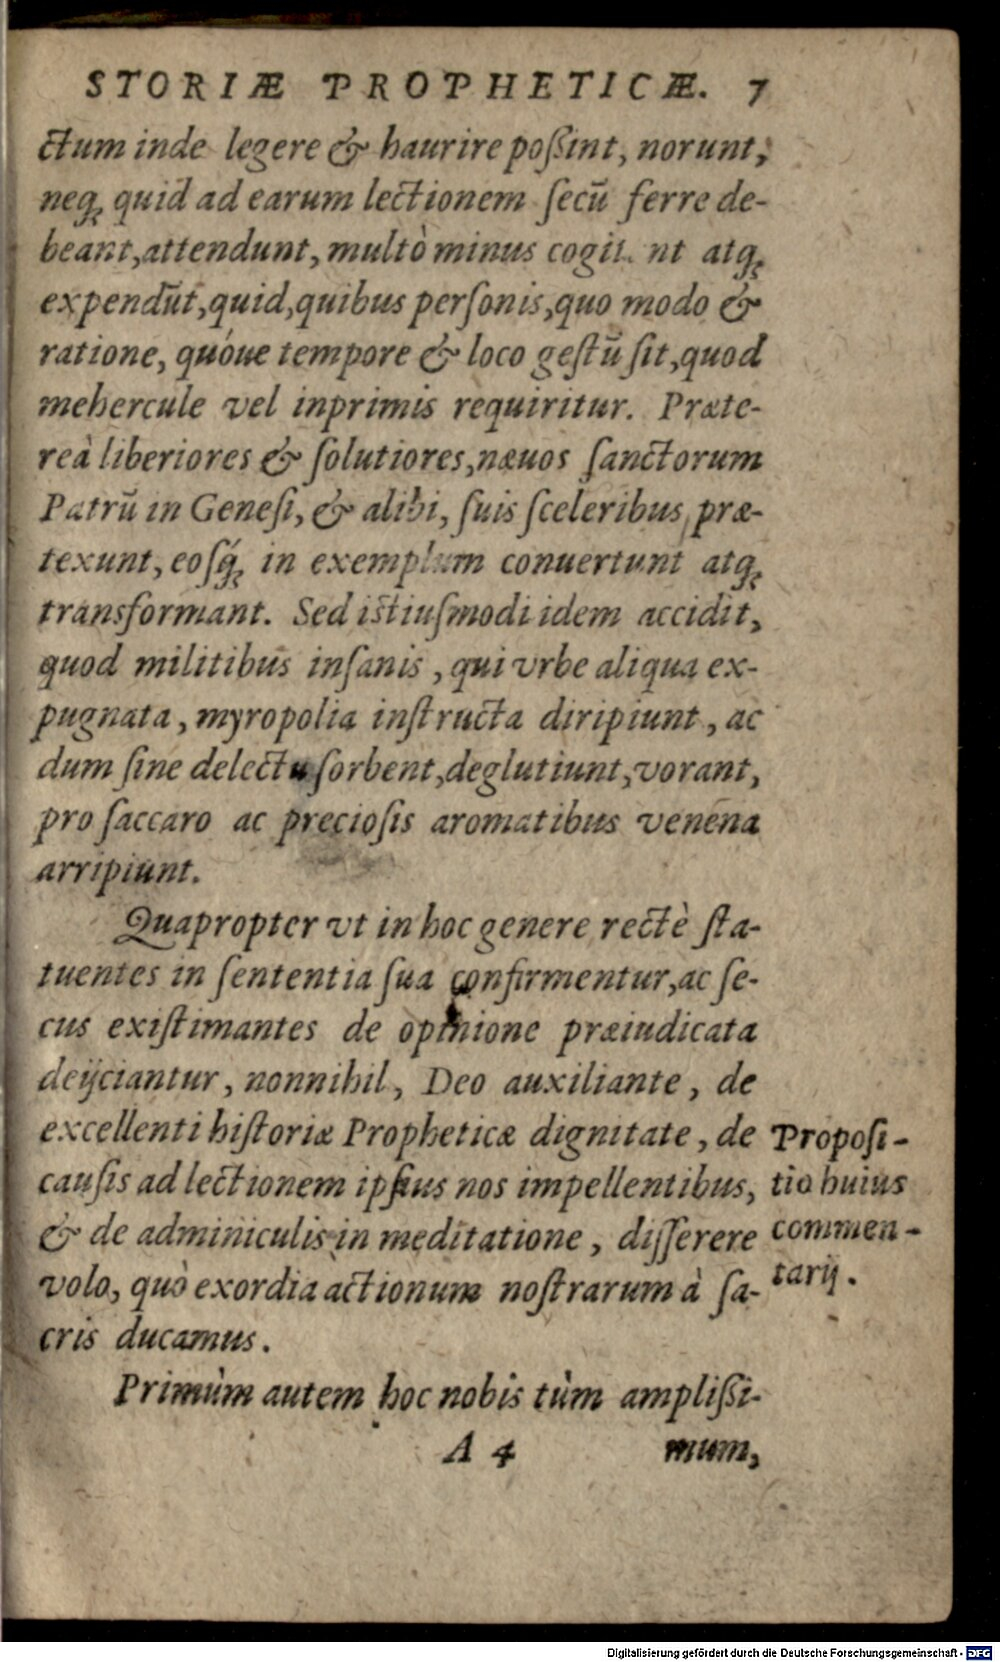 STORIÆ PROPHETICÆ. 7
ctum inde legere & haurire poßint, norunt,
neq́; quid ad earum lectionem ſecū ferre de-
beant, attendunt, multò minus cogit nt atq;
expendūt, quid, quibus perſonis, quo modo &
ratione, quóue tempore & loco geſtū ſit, quod
mehercule vel inprimis requiritur. Præte-
reà liberiores & ſolutiores, næuos ſanctorum
Patrū in Geneſi, & alibi, ſuis ſceleribus præ-
texunt, eoſq́; in exemplum conuertunt atq;
transformant. Sed iſtiuſmodi idem accidit,
quod militibus inſanis, qui vrbe aliqua ex-
pugnata, myropolia inſtructa diripiunt, ac
dum ſine delectu ſorbent, deglutiunt, vorant,
pro ſaccaro ac precioſis aromatibus venena
arripiunt.
Quapropter vt in hoc genere rectè ſta-
tuentes in ſententia ſua confirmentur, ac ſe-
cus exiſtimantes de opinione præiudicata
deijciantur, nonnihil, Deo auxiliante, de
excellenti hiſtoriæ Propheticæ dignitate, de
cauſis ad lectionem ipſius nos impellentibus,
& de adminiculis in meditatione, diſſerere
volo, quò exordia actionum noſtrarum à ſa-
cris ducamus.
Propoſi-
tio huius
commen-
tarij.
Primùm autem hoc nobis tùm ampliſsi-
A 4 mum,
Digitalisierung gefördert durch die Deutsche Forschungsgemeinschaft - DFG